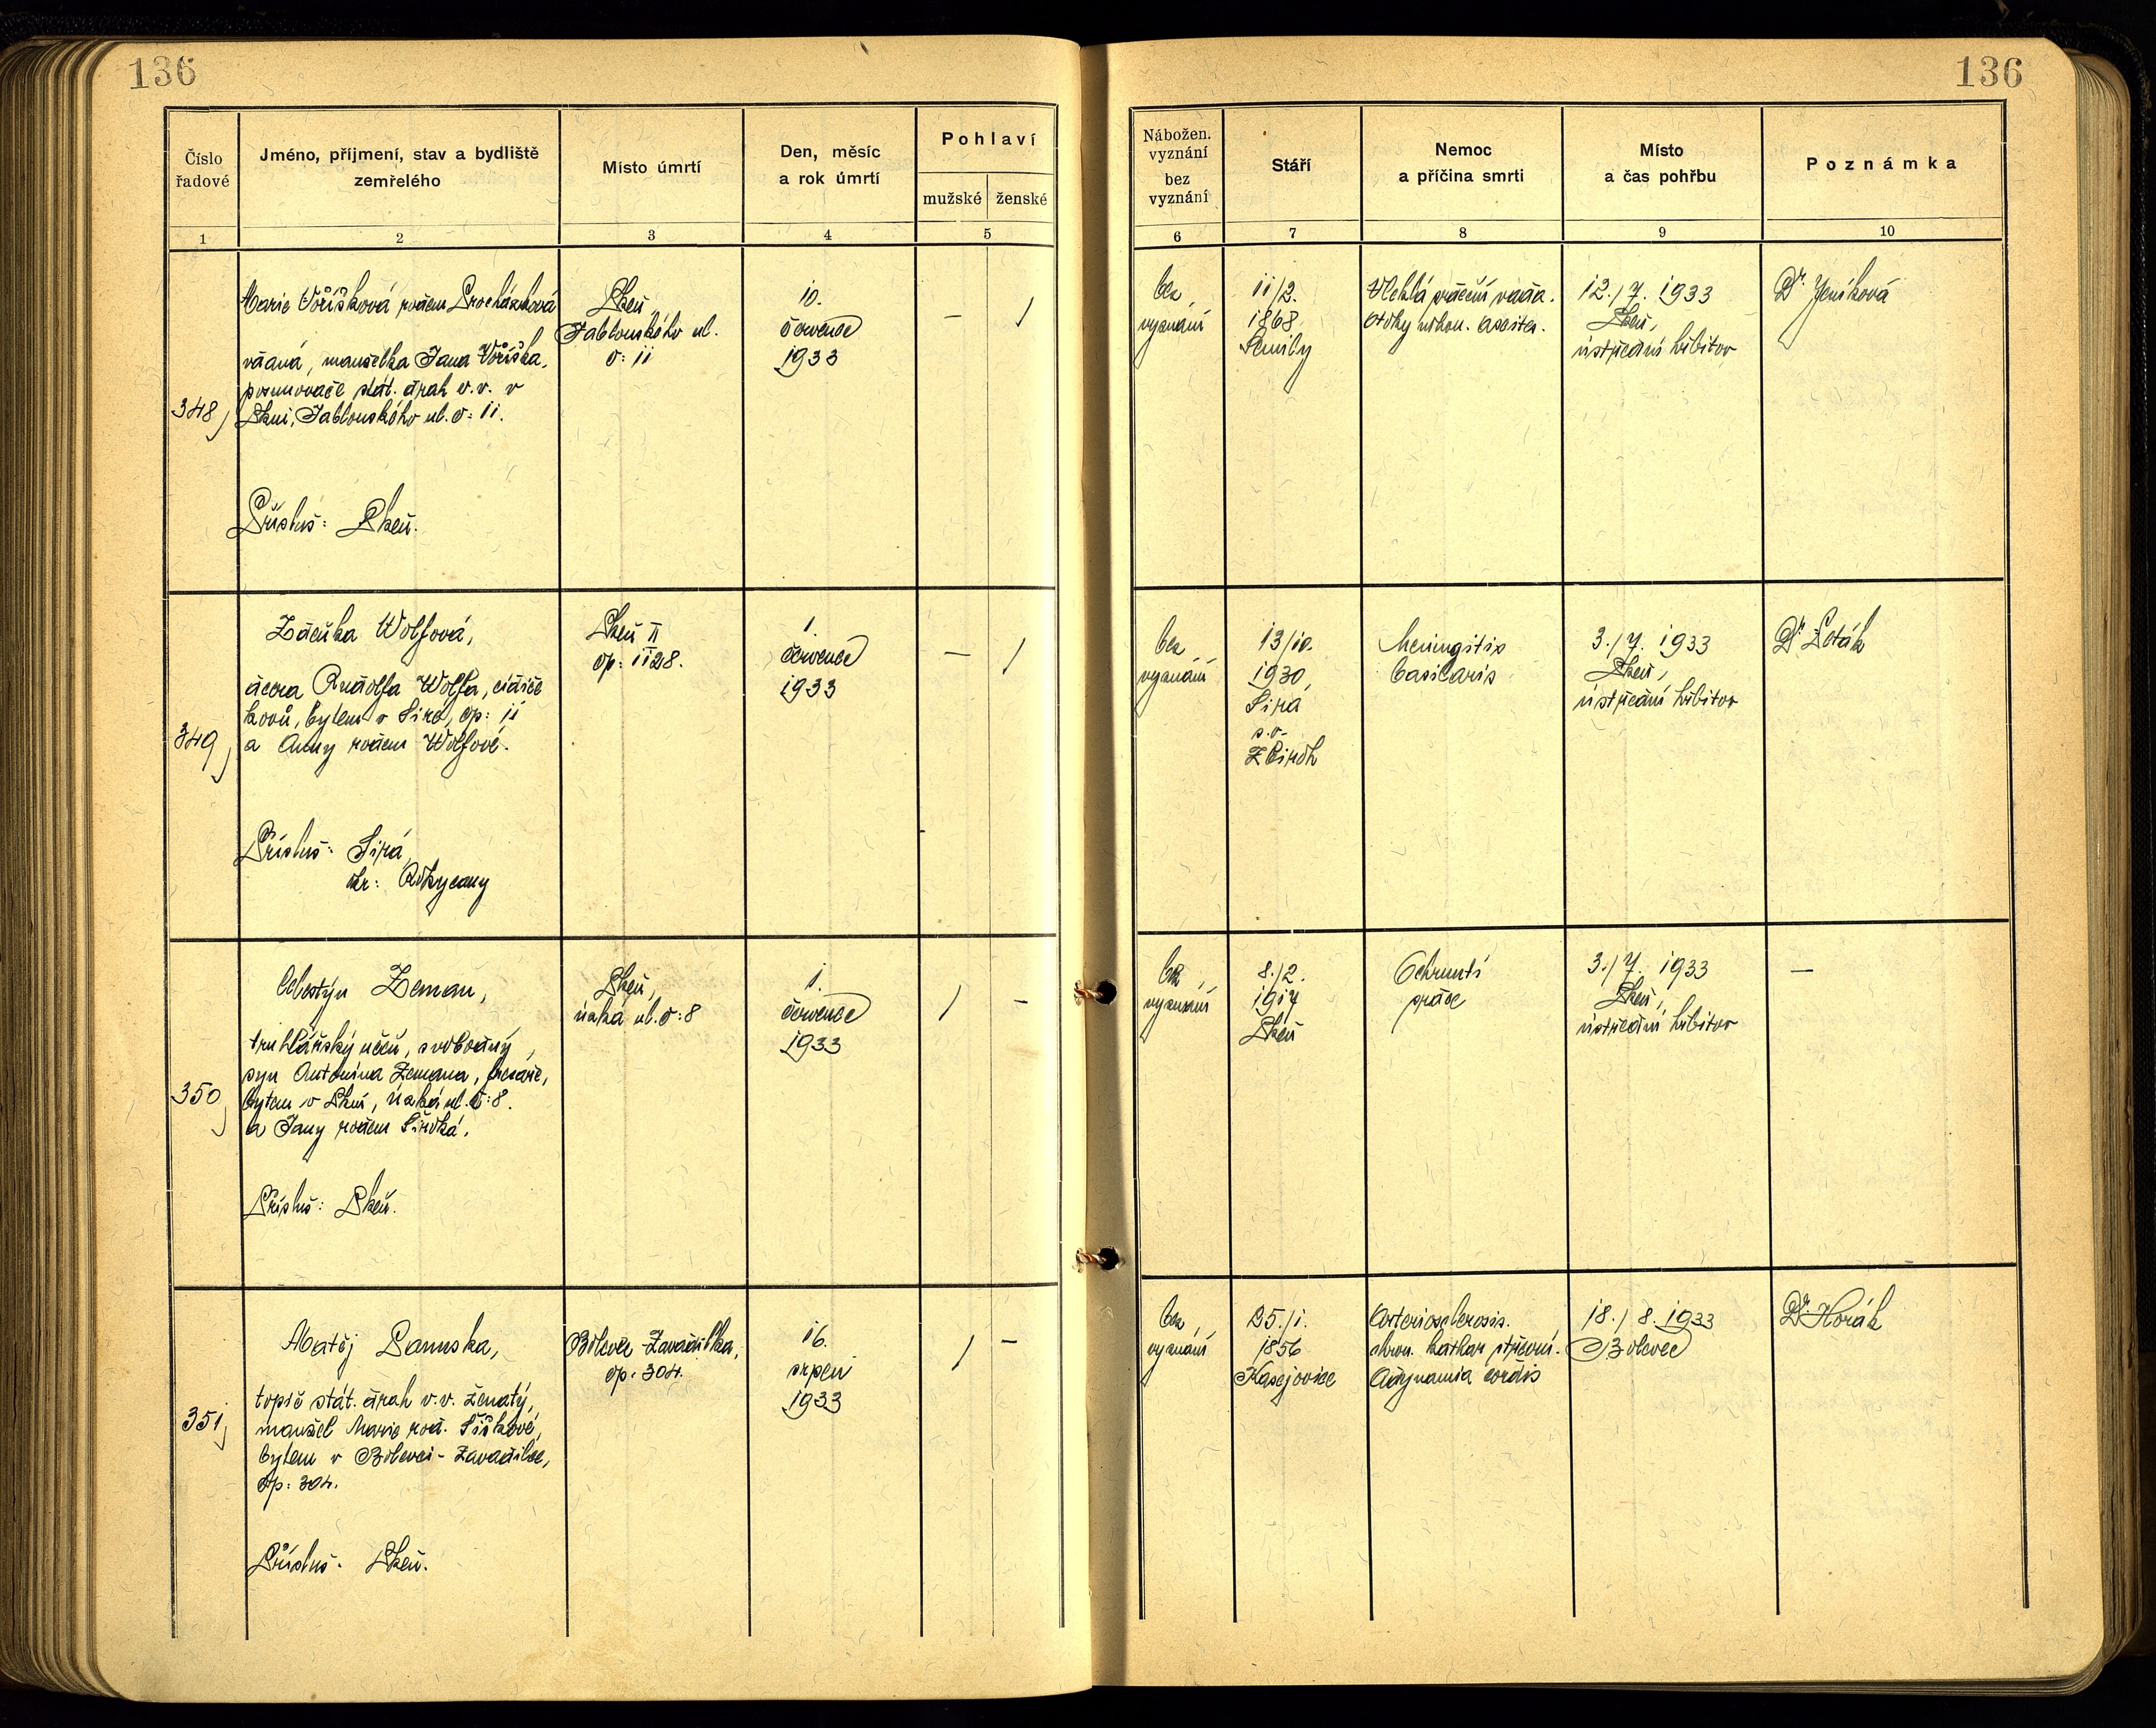 136
136
Číslo
řadové
Jméno, příjmení, stav a bydliště
zemřelého
Místo úmrtí
Den, měsíc
a rok úmrtí
Pohlaví
mužské
ženské
Nábožen.
vyznání
bez
vyznání
Stáří
Nemoc
a příčina smrti
Místo
a čas pohřbu
Poznámka
1
2
3
4
5
6
7
8
9
10
348
Marie Voříšková rodem Procházková
vdaná, manželka Jana Voříška,
posunovače stát. drah v. v. v
Plzni, Jablonského ul. č: 11.
Přísluš: Plzeň.
Plzeň,
Jablonského ul.
č: 11
10.
července
1933
—
/
bez
vyznání
11/2.
1868
Semily
Vleklá srdeční vada.
ascites.
12./7. 1933
Plzeň,
ústřední hřbitov
Dr Jeníková
349
Zdeňka Wolfová,
dcera Rudolfa Wolfa, cidiče
kovů, bytem v Siré, čp: 11
a Anny rodem Wolfové.
Přísluš: Sirá
okr: Rokycany
Plzeň II
čp: 1128.
1.
července
1933
—
/
bez
vyznání
13/10.
1930
Sirá
s. o.
Zbiroh
Meningitis
basilaris
3./7. 1933
Plzeň,
ústřední hřbitov
Dr
350
Celestýn Zeman,
truhlářský učeň, svobodný,
syn Antonína Zemana,
bytem v Plzni, úzká ul. č: 8.
a Jany rodem Široká.
Přísluš: Plzeň.
Plzeň,
úzká ul. č: 8
1.
července
1933
/
—
bez
vyznání
8./2.
1917
Plzeň
Ochrnutí
srdce
3./7. 1933
Plzeň,
ústřední hřbitov
—
351
Matěj Panuska,
topič stát. drah v. v. ženatý,
manžel Marie rod. Šiškové,
bytem v Bolevci - Zavadilce,
čp: 304.
Přísluš. Plzeň.
Bolevec - Zavadilka,
čp. 304.
16.
srpen
1933
/
—
bez
vyznání
25./1.
1856
Kasejovice
Arteriosclerosis.
chron. kathar střevní.
Adynamia cordis
18./8. 1933
Bolevec
Dr. Horák